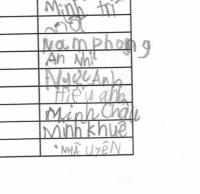 Minh Trí
Nam phong
An Nhi
Ngọc Ánh
Hiếu anh
Minh Châu
Minh khuê
NHÃ UYÊN